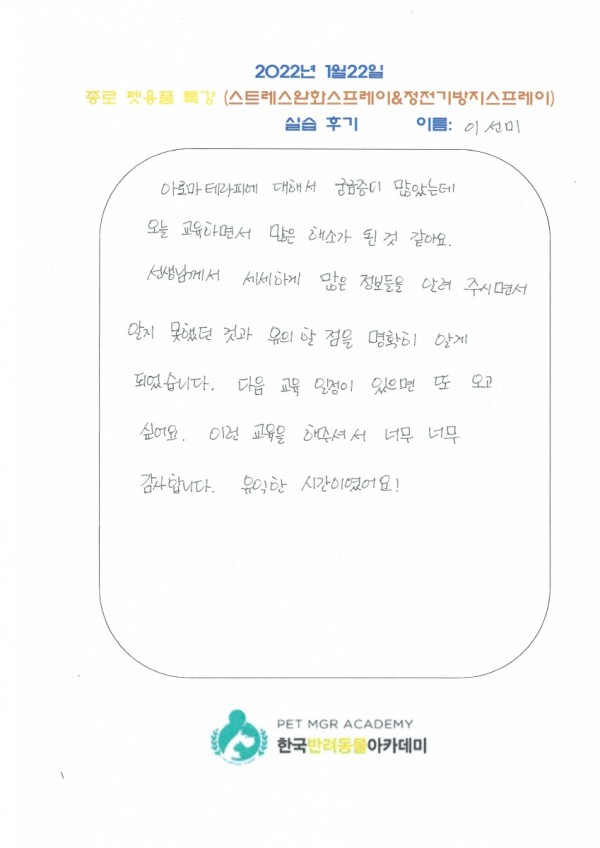 2022년 1월22일
종로 펫용품 특강 (스트레스완화스프레이&정전기방지스프레이)
실습 후기 이름: 이선미
아로마 테라피에 대해서 궁금증이 많았는데
오늘 교육하면서 많은 해소가 된 것 같아요.
선생님께서 세세하게 많은 정보들을 알려 주시면서
알지 못했던 것과 유의 할 점을 명확히 알게
되었습니다. 다음 교육 일정이 있으면 또 오고
싶어요. 이런 교육을 해주셔서 너무 너무
감사합니다. 유익한 시간이였어요!
PET MGR ACADEMY
한국반려동물아카데미